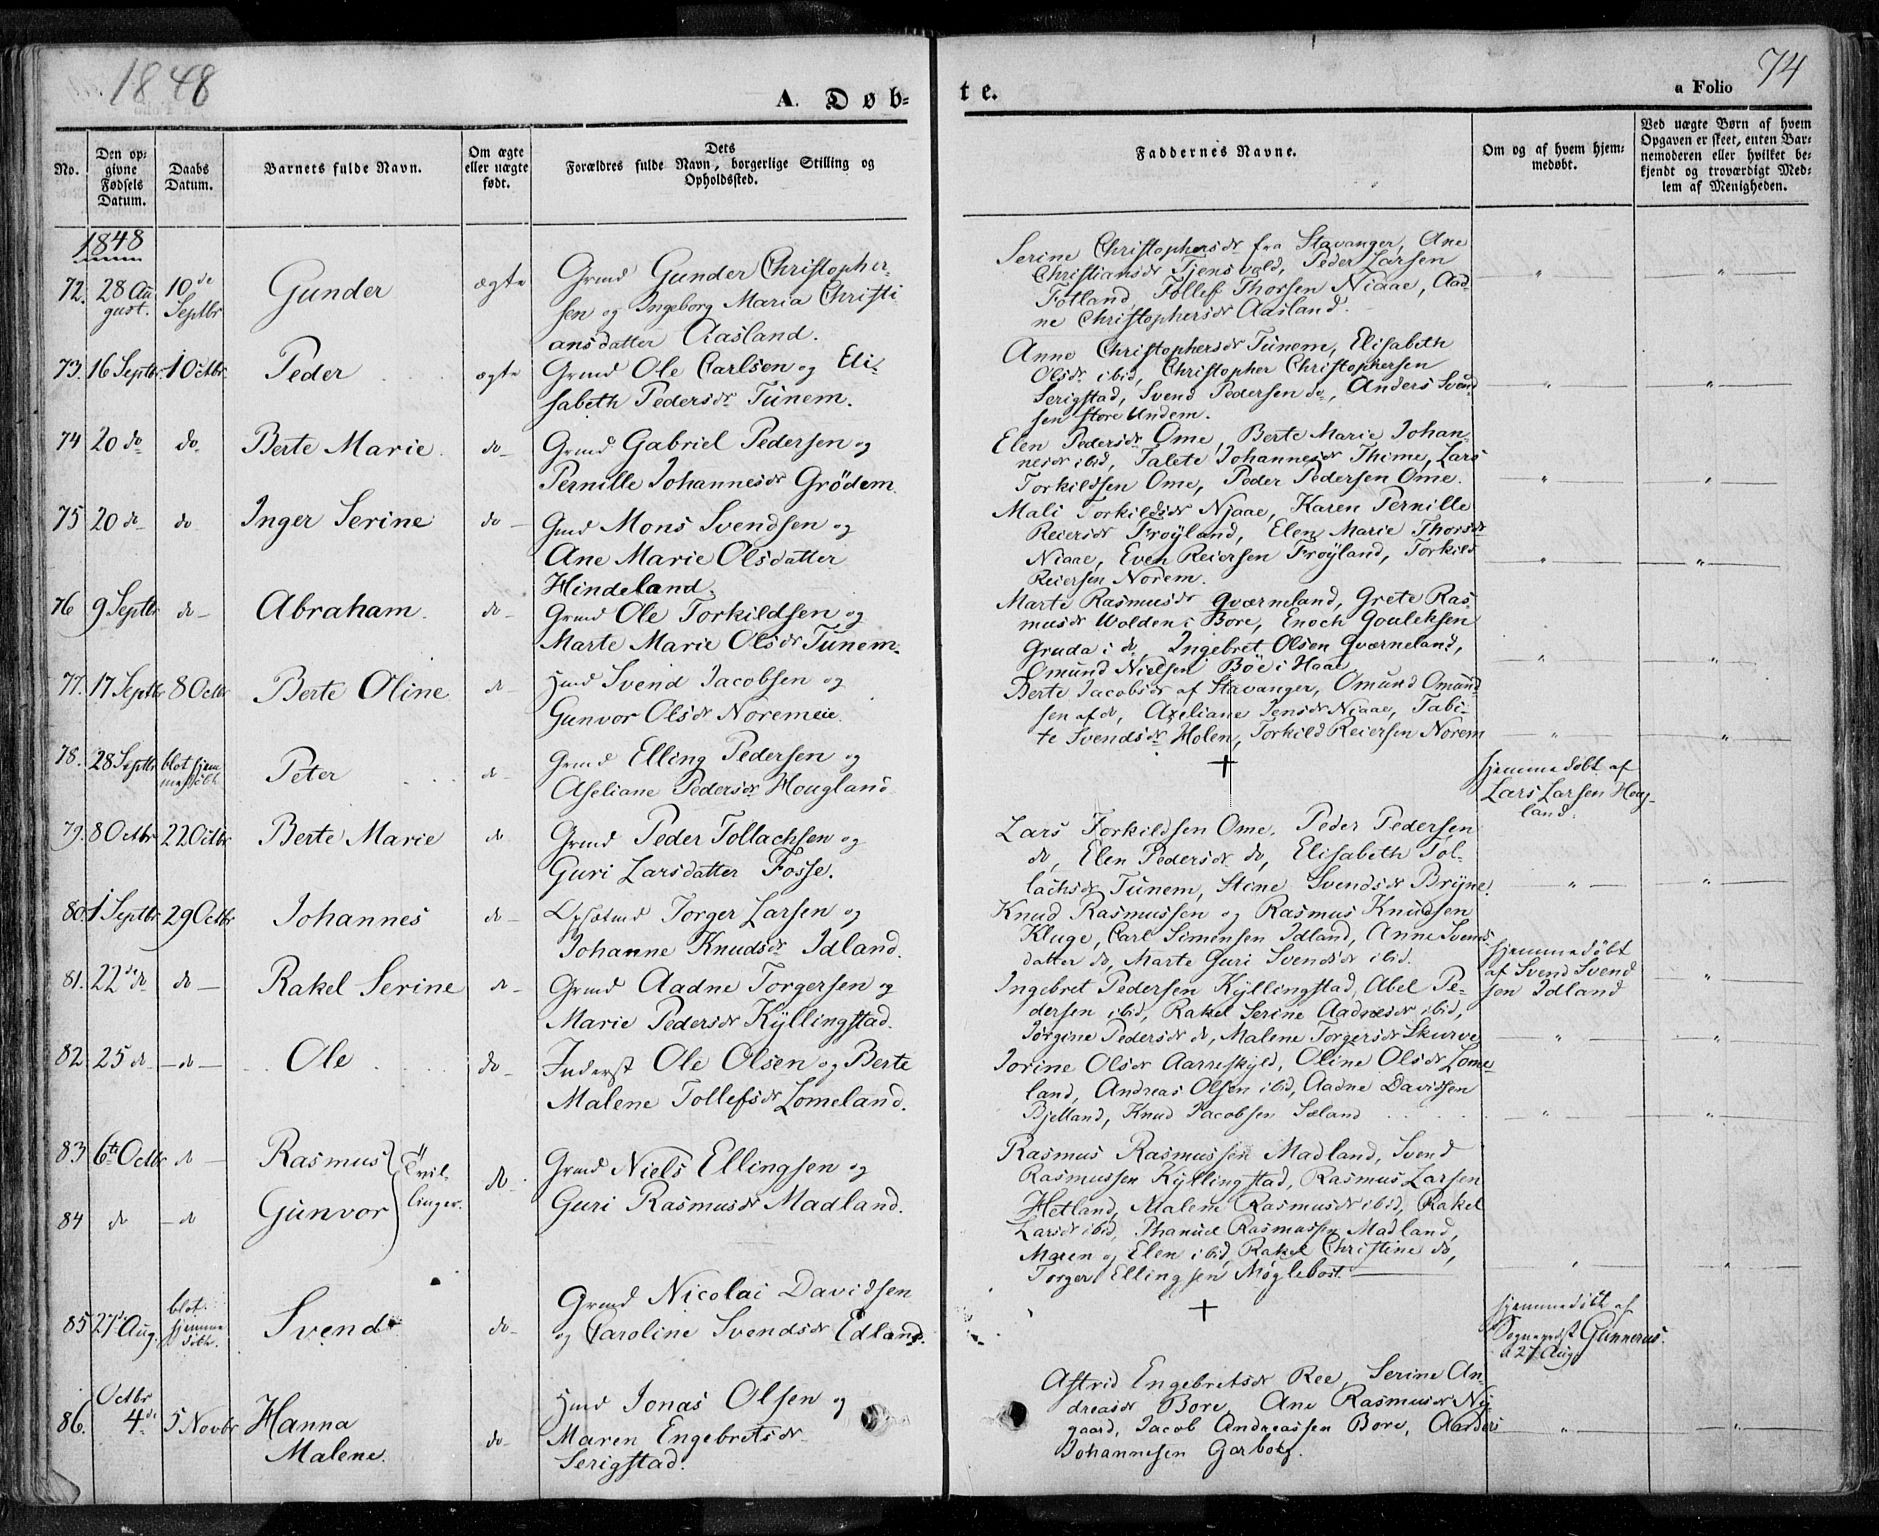 1848
A. Døb-
te.
a Folio 74
No.
Den op-
givne
Fødsels
Datum.
Daabs
Datum.
Barnets fulde Navn.
Om ægte
eller uægte
født.
Dets
Forældres fulde Navn, borgerlige Stilling og
Opholdssted.
Faddernes Navne.
Om og af hvem hjem-
medøbt.
Ved uægte Børn af hvem
Opgaven er skeet, enten Bar-
nemoderen eller hvilket be-
kjendt og troværdigt Med-
lem af Menigheden.
1848
72. 28 Au
gust.
10de
Septbr
Gunder
ægte
Grmd Gunder Christopher-
sen og Ingeborg Maria Christi
ansdatter Aasland.
Serine Christophersdr fra Stavanger, Ane
Christiansdr Tjensvold, Peder Larsen
Fotland, Tollef Thorsen Niaae, Aad-
ne Christophersdr Aasland.
"
"
73. 16 Septbr. 1 Octbr. Peder
ægte
Grmd Ole Carlsen og Eli-
sabeth Pedersdr Tunem.
Anne Christophersdr Tunem, Elisabeth
Olsdr ibid, Christopher Christophersen
Serigstad, Svend Pedersen do, Anders Svend
sen Store Undem.
"
"
74 20 do do Berte Marie.
do
Grmd Gabriel Pedersen og
Pernille Johannesdr Grödem
Elen Pedersdr Ome, Berte Marie Johan-
nesdr ibid, Talete Johannesdr Thime, Lars
Torkildsen Ome, Peder Pedersen Ome.
"
"
75 20 do do Inger Serine
do
Gmd Mons Svendsen og
Ane Marie Olsdatter
Hindeland.
Mali Torkildsdr Njaae, Karen Pernille
Reiersdr Frøyland, Elen Marie Thorsdr
Niaae, Even Reiersen Frøyland, Torkild
Reiersen Norem.
"
"
76 9 Septbr do Abraham.
do
Grmd Ole Torkildsen og
Marte Marie Olsdr Tunem.
Marte Rasmusdr Qværneland, Grete Ras-
musdr Wolden i Bore, Enoch Gauleksen
Gruda i do, Ingebret Olsen Qværneland,
Omund Nielsen Böe i Haae
"
"
77. 17 Septbr 8 Octbr Berte Oline
do
Hmd Svend Jacobsen og
Gunvor Olsdr Noremeie.
Berte Jacobsdr af Stavanger, Omund Omund
sen af do, Axeliane Jensdr Niaae, Tabi-
te Svendsdr Holen, Torkild Reiersen Norem
"
"
78. 28 Septbr blot hjem
medöbt
Peter
do
Grmd Elling Pedersen og
Aseliane Pedersdr Hougland
+
Hjemmedöbt af
Lars Larsen Houg-
land.
79. 8 Octbr 22 Octbr Berte Marie
do
Grmd Peder Tollachsen og
Guri Larsdatter Fosse.
Lars Torkildsen Ome, Peder Pedersen
do, Elen Pedersdr do, Elisabeth Tol-
lachsdr Tunem, Stine Svendsdr Bryne.
"
"
80. 1 Septbr 29 Octbr Johannes
do
Opsætmd Torger Larsen og
Johanne Knudsdr Idland.
Knud Rasmussen og Rasmus Knudsen
Kluge, Carl Simonsen Idland, Anne Svends
datter do, Marte Guri Svendsdr ibid.
Hjemmedöbt
af Svend Svend
sen Idland
"
81. 22de do do Rakel Serine
do
Grmd Aadne Torgersen og
Marie Pedersdr Kÿllingstad.
Ingebret Pedersen Kÿllingstad, Abel Pe-
dersen ibid, Rakel Serine Aadnesdr ibid,
Jørgine Pedersdr do, Malene Torgersdr Skurve
"
"
82. 25 do do Ole
do
Inderst Ole Olsen og Berte
Malene Tollefsdr Lomeland.
Jorine Olsdr Aarreskjld, Oline Olsdr Lome-
land, Andreas Olsen ibid, Aadne Davidsen
Bjelland, Knud Jacobsen Sæland
"
"
83. 6te Octbr do Rasmus
84 do do Gunvor
Tvil-
linger.
do
Grmd Niels Ellingsen og
Guri Rasmusdr Madland.
Rasmus Rasmussen Madland, Svend
Rasmussen Kÿllingstad, Rasmus Larsen
Hetland, Malene Rasmusdr ibid, Rakel
Larsdr ibid, Thanuel Rasmussen Madland,
Maren og Elen ibid, Rakel Christine do,
Torger Ellingsen Møglebost.
"
"
85 27de Aug. blot
hjemme
döbt.
Svend
do
Grmd Nicolai Davidsen
og Caroline Svendsdr Edland.
+
Hjemmedöbt af
Sogneprst Gunnerus.
d 27 Aug.
86. Octbr
4de
5 Novbr Hanna
Malene.
do
Hmd Jonas Olsen og
Maren Engebretsdr
Serigstad.
Astrid Engebretsdr Ree, Serine An-
dreasdr Bore, Ane Rasmusdr Ny-
gaard, Jacob Andreassen Bore, Anders
Johannesen Garborg.
"
"